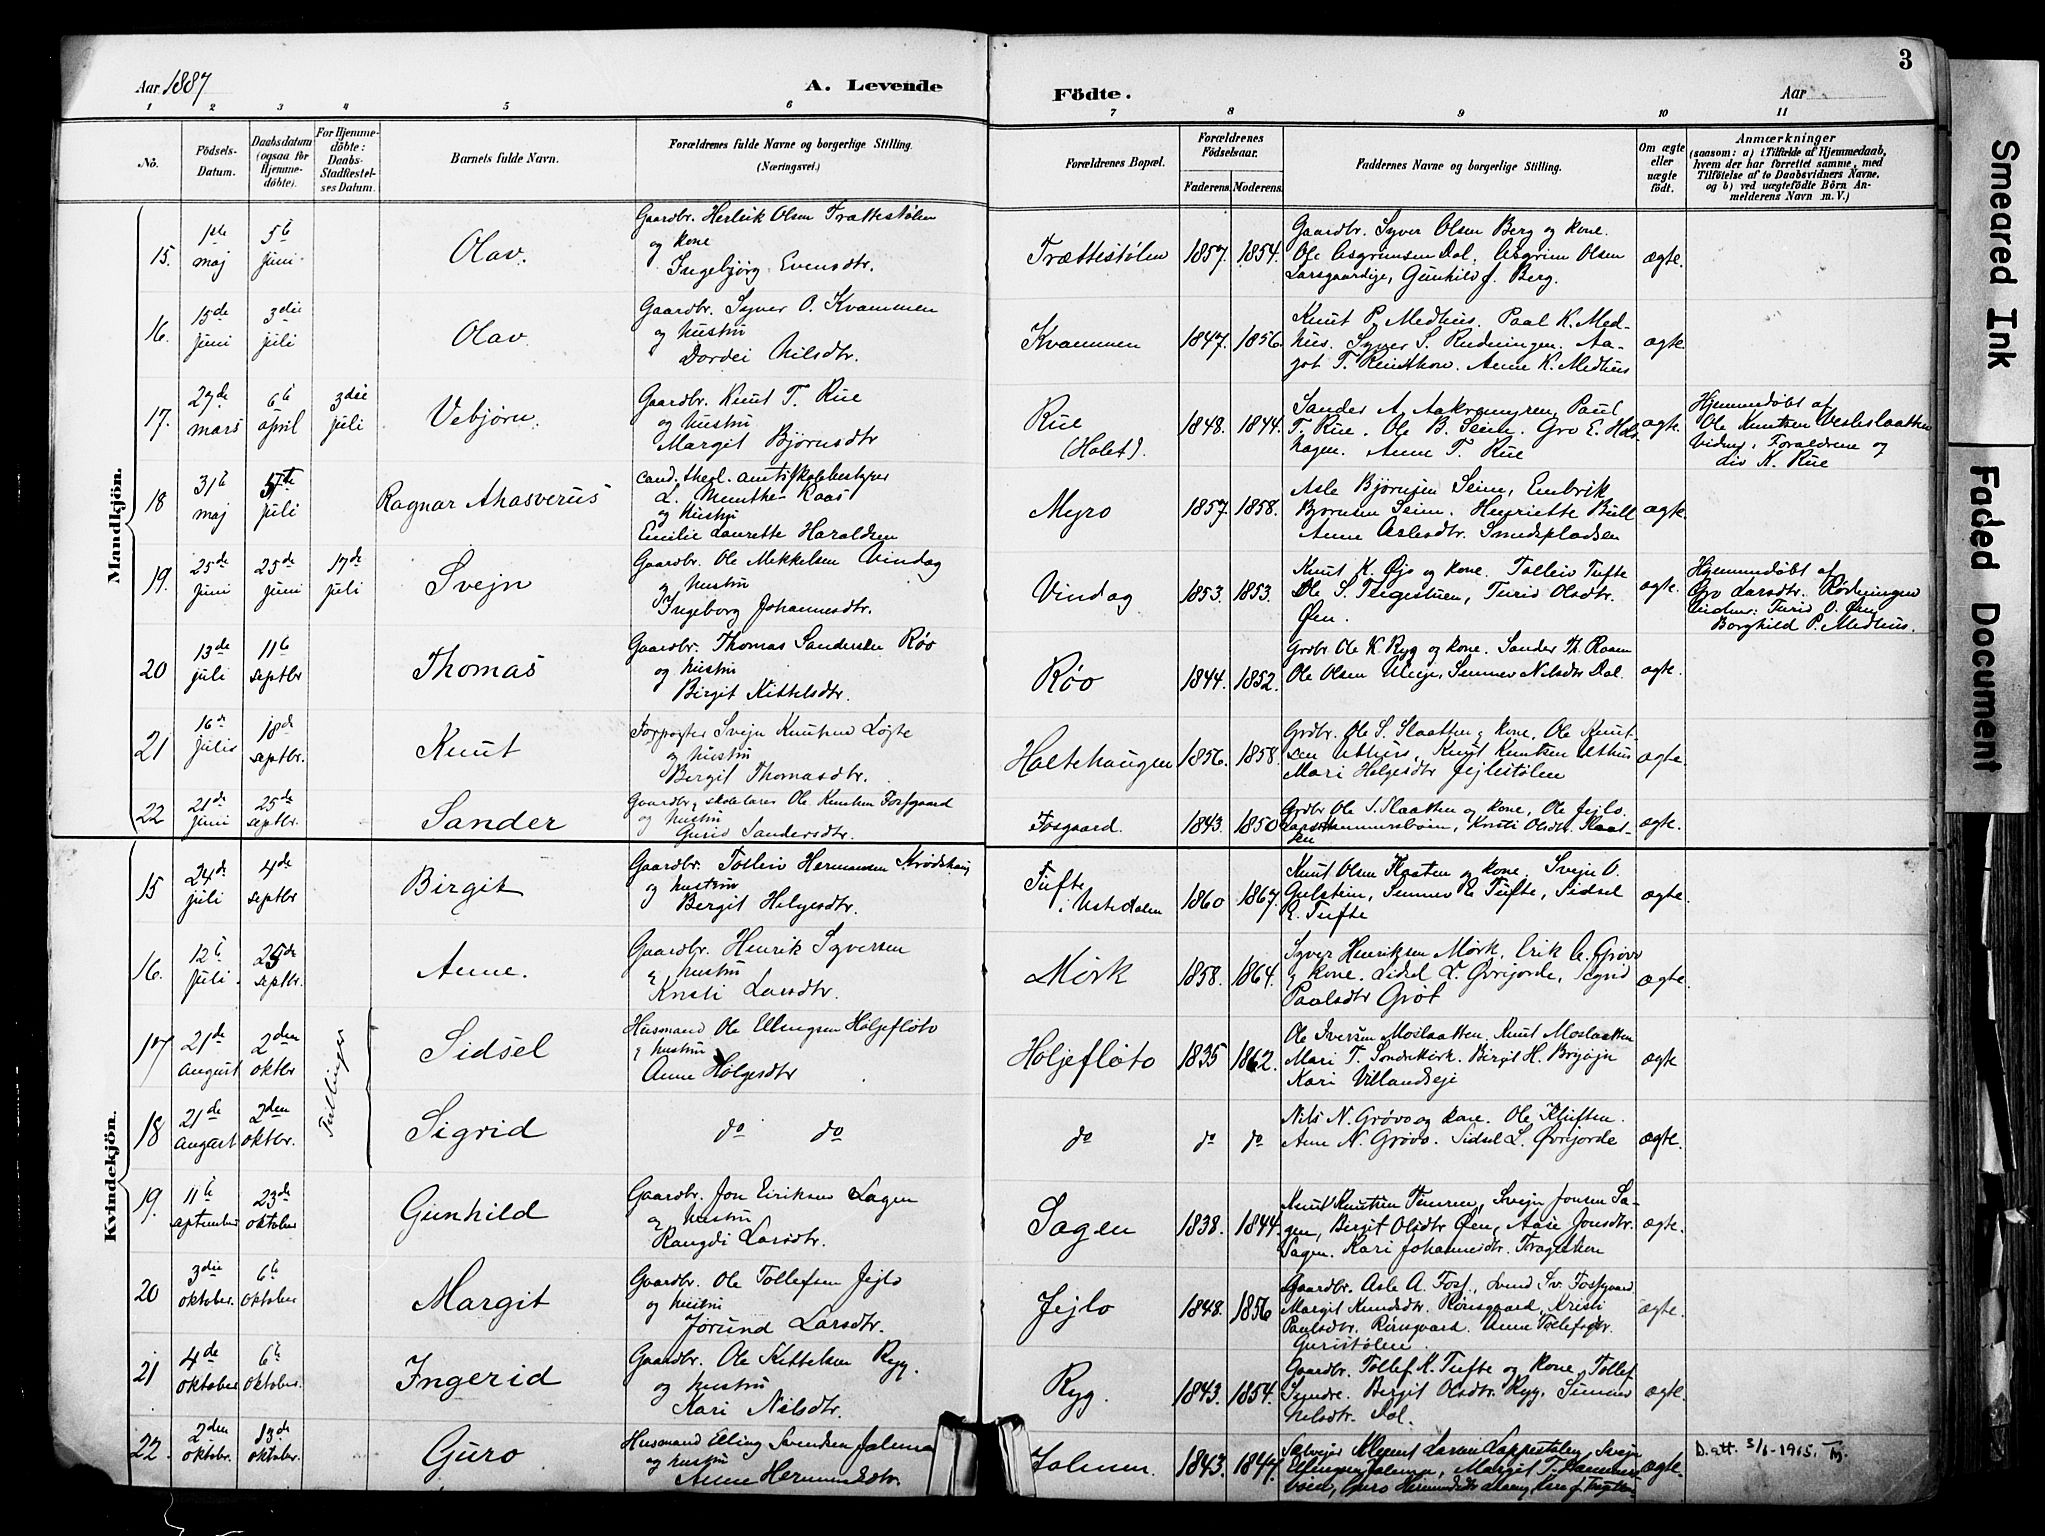 Aar 1887
A. Levende
Födte.
Aar
3
1 2 3 4 5 6 7 8 9 10 11
No.
Födsels-Datum.
Daabsdatum (ogsaa for Hjemmedöbte).
For Hjemmedöbte: Daabs-Stadfæstelses Datum.
Barnets fulde Navn.
Forældrenes fulde Navne og borgerlige Stilling.
(Næringsvei.)
Forældrenes Bopæl.
Forældrenes Födselsaar.
Faderens. Moderens.
Faddernes Navne og borgerlige Stilling.
Om ægte eller uægte födt.
Anmærkninger
(saasom: a) i Tilfælde af Hjemmedaab, hvem der har forrettet samme, med Tilföielse af to Daabsvidners Navne, og b) ved uægtefödte Börn Anmelderens Navn m. V.)
Mandkjön.
15. 1ste maj 5te juni Olav. Gaardbr. Herleik Olsen Trættestølen og kone Ingebjørg Evensdtr. Trættestølen 1857. 1854. Gaardbr. Syver Olsen Berg og kone. Ole Asgrimsen Dal, Asgrim Olsen Larsgaardeie, Gunhild J. Berg. ægte.
16. 15de juni 3die juli Olav. Gaardbr. Syver O. Kvammen og hustru Dordei Nilsdtr. Kvammen 1847. 1856. Knut P. Medhus. Paal K. Medhus. Syver S. Rudningen. Aagot T. Anne K. Medhus ægte.
17. 27de mars 6te april 3die juli Vebjørn. Gaardbr. Knut T. Rue og hustru Margit Bjørnsdtr Rue (Holet). 1848. 1844. Sander A. Paul T. Rue. Ole B. Seim. Gro E. Anne T. Rue ægte. Hjemmedøbt af Ole Knutsen Vesleslaatten Vidner: Forældrene og Liv N. Rue
18 31te maj juli Ragnar Ahasverus cand. theol. amtsskolebestyrer L. Munthe-Kaas og hustru Emilie Laurette Haraldsen Myro 1857. 1858. Asle Bjørnsen Seim, Embrik Bjørnsen Seim. Henriette Bull Anne Aslesdtr. Smedspladsen ægte.
19. 25de juni 25de juni 17de juli Svejn Gaardbr. Ole Mekkelsen Vindag og hustru Ingeborg Johannesdtr. Vindag 1853. 1853. Knut K. Øjo og kone. Tollein Tufte Ole S. Turid Olsdtr. Øen. ægte. Hjemmedøbt af Gro Larsdtr. Rødningen Vidner: Turid O. Øen Borghild P. Medhus.
20 13de juli 11te septbr Thomas Gaardbr. Thomas Sandersen Røo og hustru Birgit Kittelsdtr. Røo 1844. 1852. Grdbr Ole K. Ryg og kone. Sander Th. Ole Olsen Sunnev Nilsdtr Dal. ægte.
21 16de juli 18de septbr. Knut Forpagter Svejn Knutsen Løgte og hustru Bergit Thomasdtr. Holtehaugen 1856. 1858. Grdbr. Ole S. Slaatten & kone, Ole Knutsen Uthus, Knut Knutsen Uthus Mari Holgesdtr Jejlestølen ægte.
22 21de juni 25de septbr. Sander Gaardbr & skolelærer Ole Knutsen Fosgaard og hustru Guri Sandersdtr. Fosgaard. 1843. 1850 Grdbr. Ole S. Slaatten og kone, Ole Jejlo Kristi Olsdtr. Slaatten ægte.
Kvindekjön.
15 24de juli 4de septbr Birgit Gaardbr. Tollein Hermandsen og hustru Bergit Helgesdtr. Tufte i Ustedalen 1860 1867. Knut Olsen og kone. Svejn O. Sunnev E. Tufte, Sidsel E. Tufte ægte.
16. 12te juli. 25de septbr. Anne. Gaardbr. Henrik Syversen & hustru Kristi Larsdtr. Mørk 1858. 1864. Syver Henriksen Mørk, Erik A. Grøvo & kone. Sidsel L. Øvrejorde, Sigrid Paulsdtr Grøt ægte.
17 21de august 2den oktbr Tvillinger Sidsel Husmand Ole Ellingsen Holjefløto & hustru Anne Holgesdtr Holjefløto 1835 1862. Ole Iversen Moslaatten, Knut Moslaatten Mari T. Birgit H. Kari Villandseje ægte
18 21de august 2den oktbr. Sigrid do do do do do Nils N. Grøvo og kone. Ole Kluften. Anne N. Grøvo. Sidsel L. Øvrejorde ægte.
19. 11te september 23de oktober Gunhild Gaardbr. Jon Eiriksen Sagen og hustru Rangdi Larsdtr. Sagen 1838. 1844. Knut Knutsen Svejn Jonsen Sagen, Birgit Olsdtr Øen, Aase Jonsdtr. Sagen. Kari Johannesdtr. ægte.
20 3die oktober. 6te oktober Margit Gaardbr. Ole Tollefsen Jejlo og hustru Jorund Larsdtr. Jejlo 1848. 1856 Gaardbr. Asle A. Foss, Svend Sv. Fossgaard Margit Knudsdtr. Rimsgaard, Kristi Paulsdtr. Rimsgaard. Anne Tollefsdtr. Guristølen ægte.
21 4de oktober 6te oktober. Ingerid Gaardbr. Ole Kittelsen Ryg. og hustru Kari Nilsdtr. Ryg. 1843. 1854. Gaardbr. Tollef K. Tufte og kone, Tollef Sundre. Bergit Olsdtr. Ryg, Sunnev Nilsdtr. Dal. ægte.
22. 2den oktobr. 23de oktober. Guro Husmand Elling Svendsen Jalma og hustru Anne Hermundsdtr. Jalmen. 1843. 1847. Selvejer Svejn Ellingsen Jalmen, Margit T. Guro Hermundsdtr ægte. D. att. 3/6-1915. Tg.
Smeared Ink
Faded Document